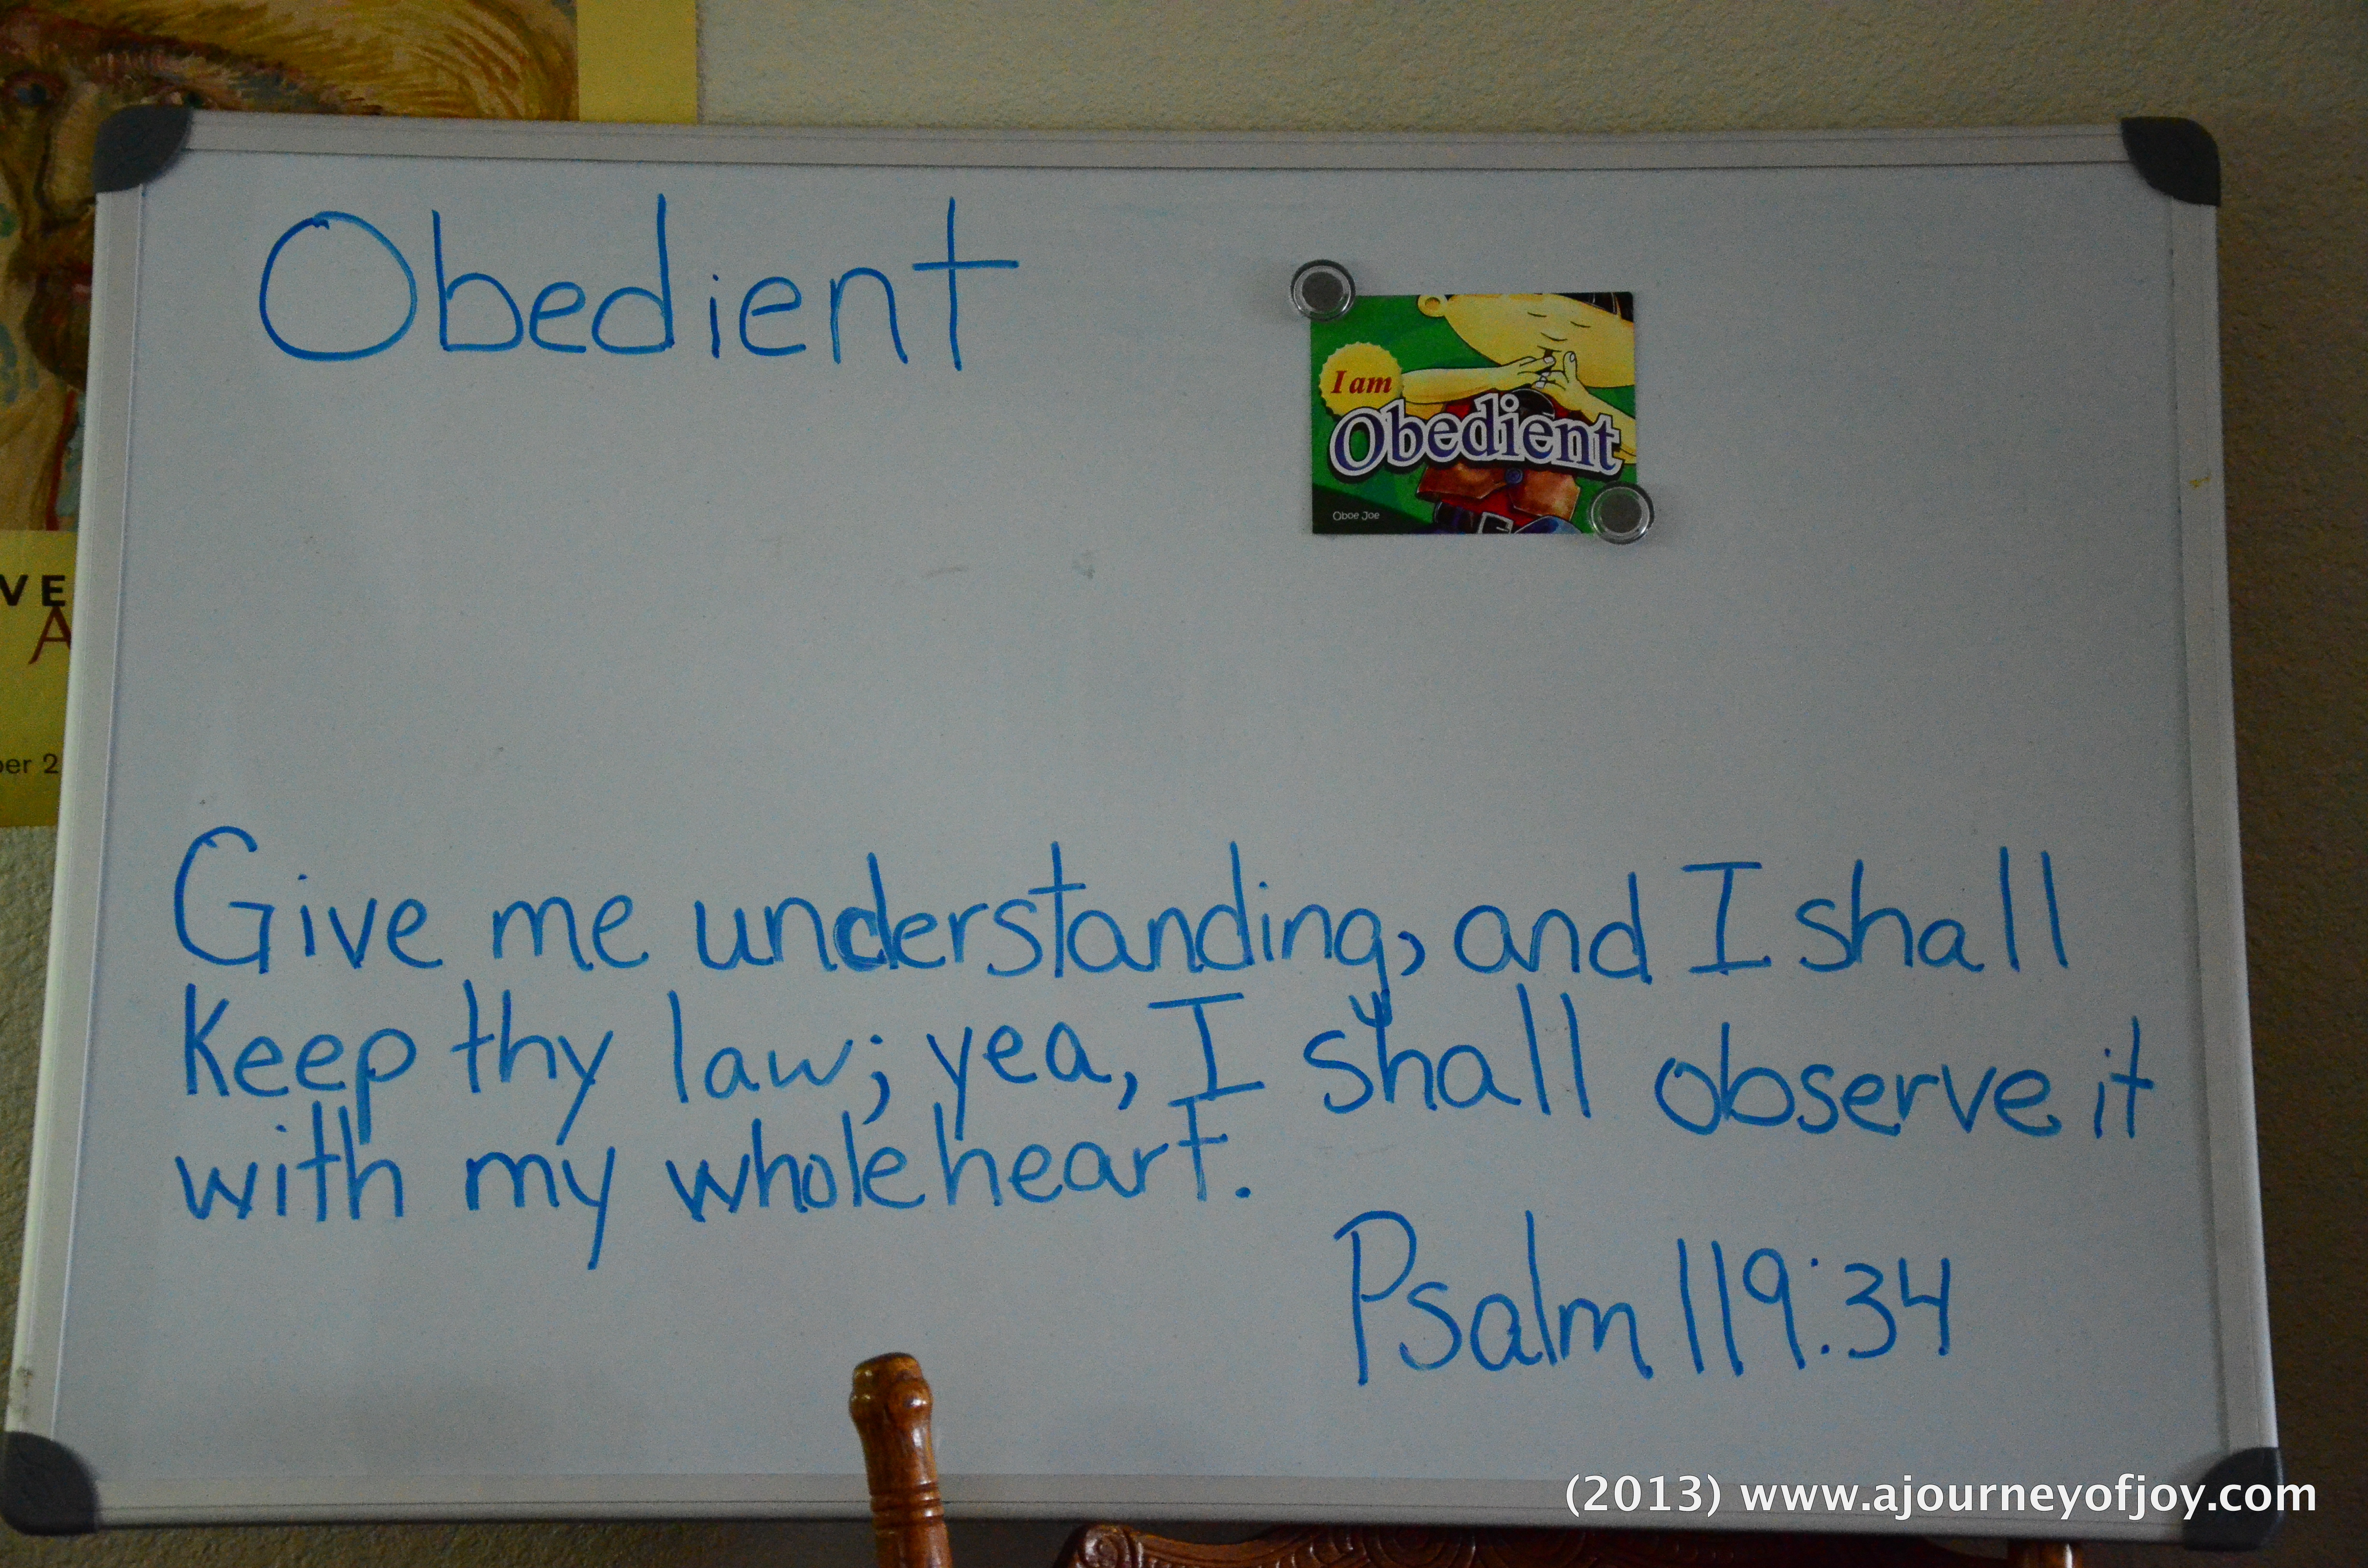 Obedient
I am
Obedient
Oboe Joe
VE
A
er 2
Give me understanding, and I shall
Keep thy law; yea, I shall observe it
with my whole heart.
Psalm 119:34
(2013) www.ajourneyofjoy.com